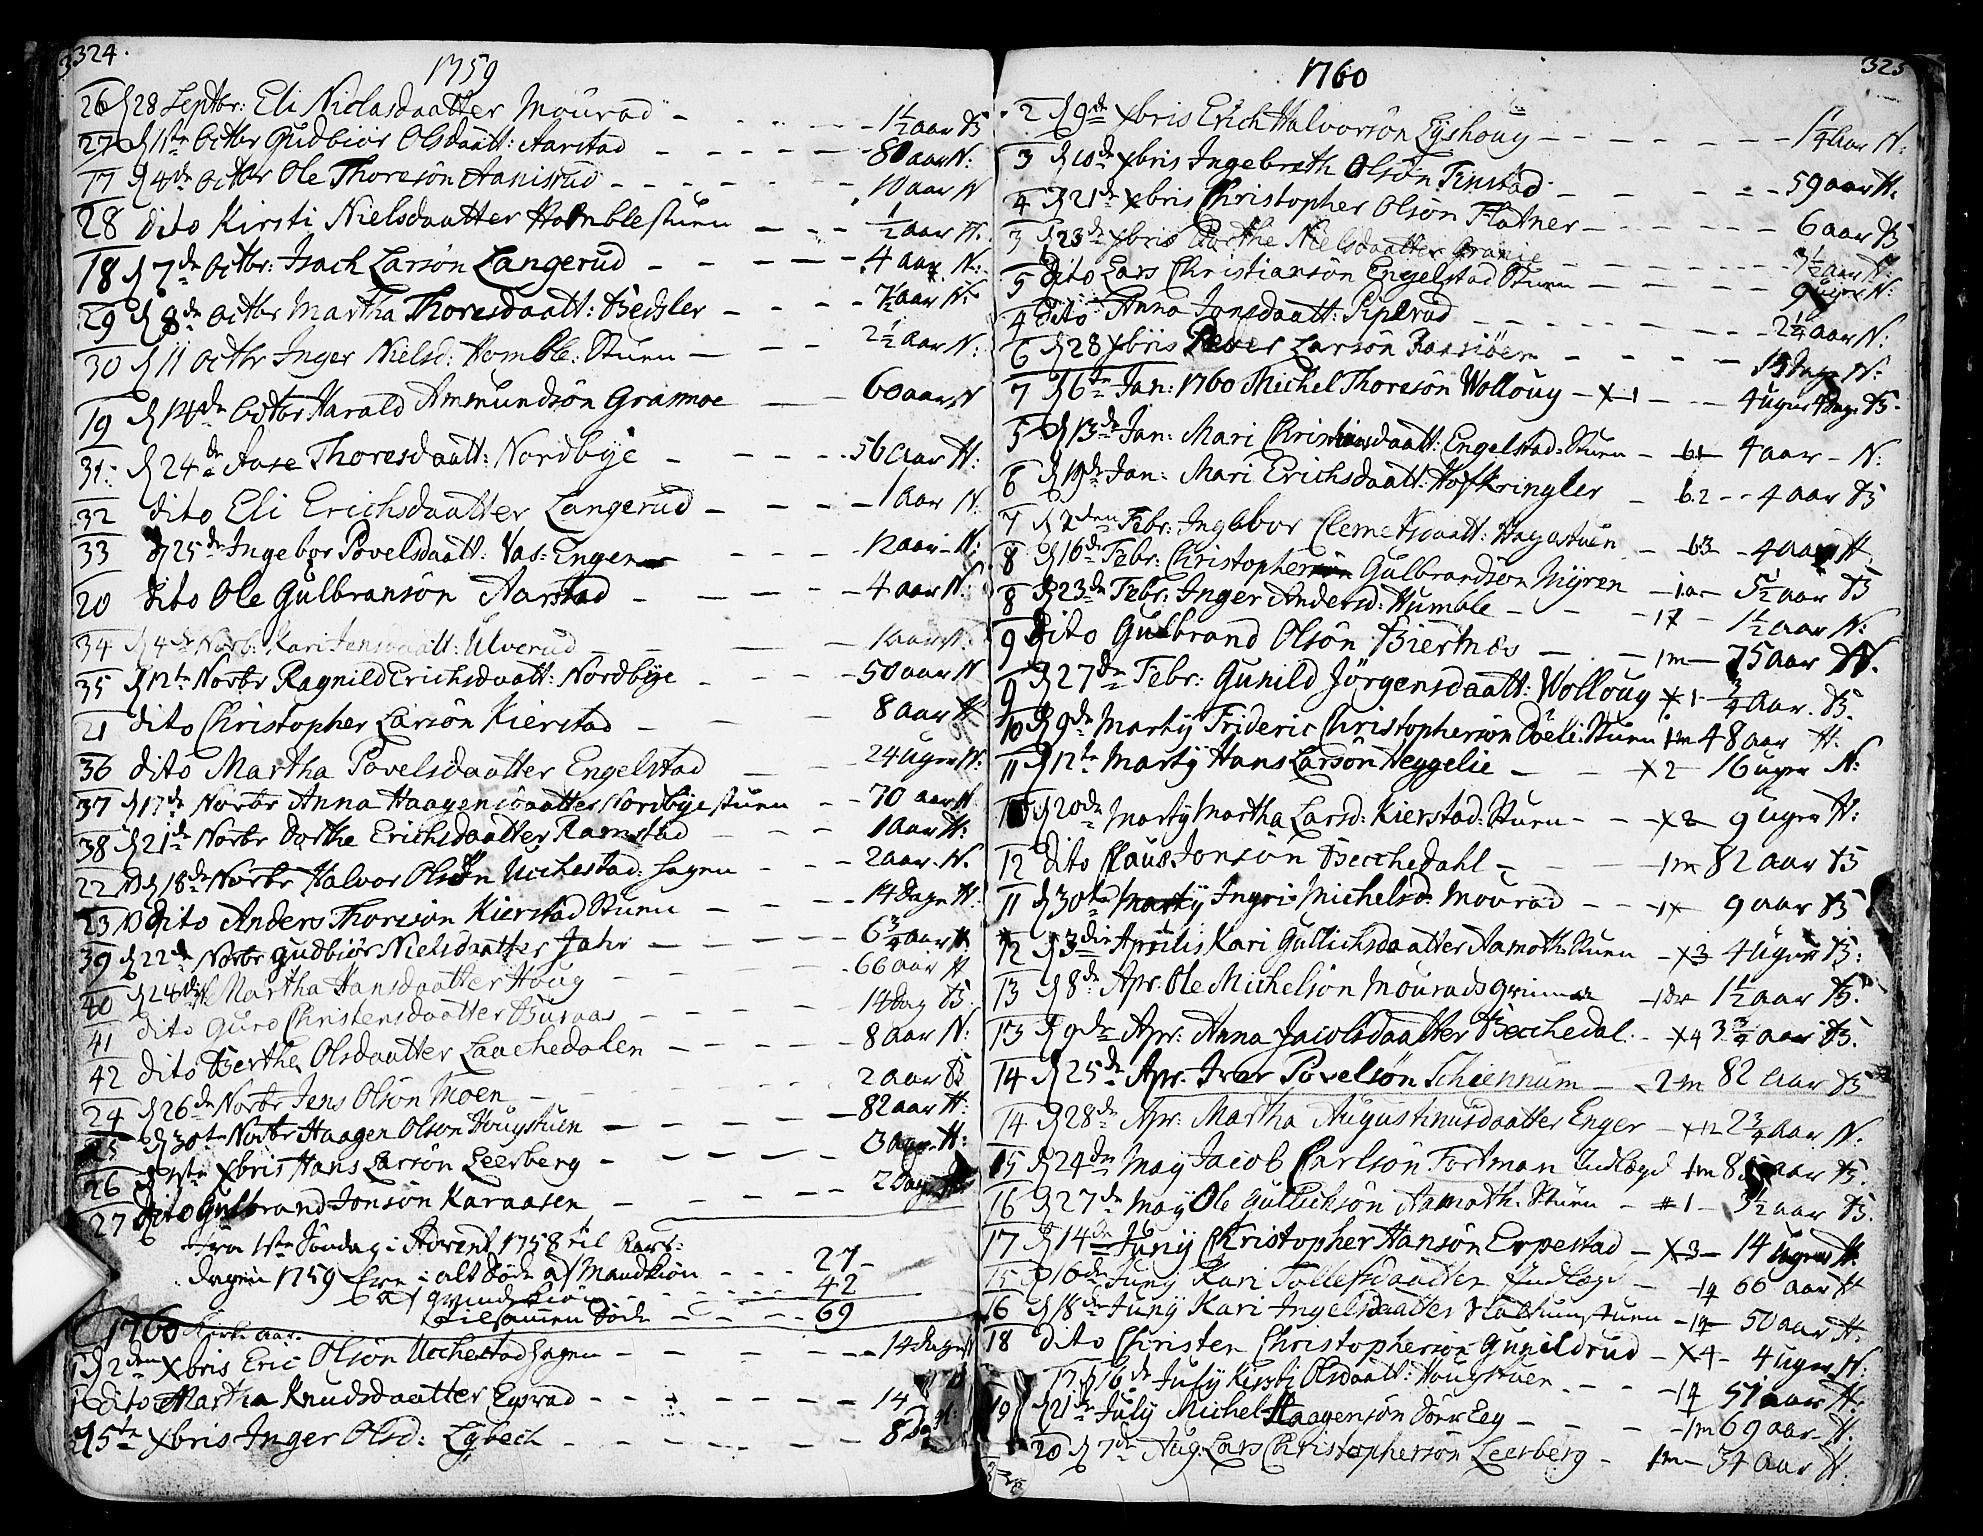 324.
1759
26 d 28 Septbr: Eli Niclasdaatter Mourad - - - - 1½ aar B
27 d 1ste Octbr Gudbiör Olsdaatt: Aarstad - - - - 80 aar N:
17 d 4de Octbr Ole Thoresön Aanisrud - - - - 10 aar N
28 dito Kirsti Nielsdaatter Homblestuen - - - ½ aar H.
18 d 7de Octbr: Isach Larsön Langerud - - - - 4 aar N:
29 d 8de Octbr Martha Thoresdaatt: - - - 7½ aar N:
30 d 11 Octbr Inger Nielsd: Homble: Stuen - - - 2½ aar N:
19 d 14de Octbr Harald Ammundsön Gramoe - - 60 aar N
31 d 24de Aase Thoresdaatt: Nordbye - - - 56 aar H:
32 dito Eli Erichsdaatter Langerud - - - 1 aar N:
33 d 25de Ingebor Povelsdaatt: Vas: Engen - - - 12 aar - N:
20 dito Ole Gulbransön Aarstad - - - - 4 aar N:
34 d 4de Novb: Kari Jensdaatt: Ulverud - - - 1 aar N:
35 d 12te Novbr Ragnild Erichsdaatt: Nordbye - - - 50 aar N
21 dito Christopher Larsön Kierstad - - - 8 aar H.
36 dito Martha Povelsdaatter Engelstad - - - 24 uger N:
37 d 17de Novbr Anna Haagensdaatter Nordbyestuen - - 70 aar N
38 d 21de Novbr Dorthe Erichsdaatter Ramstad - - - 1 aar H:
22 d 18de Novbr Halvor Olsön Uchestad: hagen - - - 2 aar. N.
23 dito Anders Thoresön Kierstad Stuen - - - 14 dage H
39 d 22de Novbr Gudbiör Nielsdaatter Jahr - - - 6¾ aar H
40 d 24de Martha Hansdaatter Houg - - - 66 aar H
41 dito Guro Christensdaatter Buraas - - - 14 dag B.
42 dito Berthe Olsdaatter Laachedalen - - - 8 aar N:
24 d 26de Novbr Jens Olsön Moen - - - 2 aar B
25 d 30te Novbr Haagen Olsön Hougstuen - - - 82 aar H:
26 d 1ste Xbris Hans Larsön Leerberg - - - H:
27 dito Gulbrand Jonsön Karaasen - - - 2 dag
Fra 1ste Söndag i Advent 1758 til
dagen 1759 ere i alt döde af Mandkiön - - - 27 -
af qvindekiön - - - 42
tilsammen döde - - - 69
1760 Kirke aar.
1 d 2den Xbris Eric Olsön Uchestad hagen - - - 14 dage
1 dito Martha Knudsdaatter Egsrad - - - 14
2 d 5te Xbris Inger Olsd: Lybech - - - 8 dag
325
1760
2 d 9de Xbris Erich Halvorsön Lyshoug - - - 1¼ aar N:
3 d 10de Xbris Ingebreth Olsön Finstad - - - 59 aar H.
4 d 21de Xbris Christopher Olsön Flatner - - - 6 aar B
3 d 23de Xbris Berthe Nielsdaatter Granie - - - 3½ aar H:
5 dito Lars Christiansön Engelstad Stuen - - - 9 uger N:
4 dito Anna Jonsdaatt: Piperud - - - 2¼ aar N:
6 d 28 Xbris Peder Larsön - - - N:
7 d 6te Jan: 1760 Michel Thoresön Wolloug - X 1 - - 4 uger 4 dage B.
5 d 13de Jan: Mari Christiansdaatt: Engelstad: Stuen - b1 4 aar - N:
6 d 19de Jan: Mari Erichsdaatt: Hofkringler - b2 - - 4 aar B
7 d 2den Febr: Ingebor Clemetsdaatt: Hagastuen - b3 - 4 aar H
8 d 16de Febr: Christopher Gulbrandsön Myren - 5½ aar B
8 d 23de Febr: Inger Andersd: Humble - - 1½ aar N:
9 dito Gulbrand Olsön Biertnes - - 1m - 75 aar N.
9 d 27de Febr: Gunild Jörgensdaatt: Wolloug X 1 ¾ aar. B.
10 d 9de Marty Frideric Christophersön Döeli: Stuen 1m 48 aar H.
11 d 12te Marty Hans Larsön Heggelie - - X 2 - 16 uger N:
10 d 20de Marty Martha Larsd: Kierstad: Stuen - - X 2 - 9 uger H:
12 dito Claus Jonsön Becchedahl - - 1m 82 aar B
11 d 30te Marty Ingri Michelsd: Mourad - - 9 aar B
12 d 3die Aprilis Kari Gullichsdaatter Aamoth: Stuen - X 3 4 uger B:
13 d 8de Apr. Ole Michelsön Mourads - 1½ aar B.
13 d 9de Apr: Anna Jacobsdaatter Becchedal - X 4 3¾ aar B.
14 d 25de Apr. Iver Povelsön Schiennum - 2 m 82 aar B
14 d 28de Apr: Martha Augustinusdaatter Enger - 2¾ aar N:
15 d 24de May Jacob Carlsön Fortman Indlogd 1m aar B.
16 d 27de May Ole Gullichsön Aamoth: Stuen - # 1 - 3½ aar B.
17 d 14de Juny Christopher Hansön Erpestad - X 3 - 14 uger H.
15 d 16de Juny Kari Tollefsdaatter Indlogd - 1q 66 aar H
16 d 18de Juny Kari Ingelsdaatter - 1q - 50 aar H.
18 dito Christen Christophersön Gunildrud - X 4 - 4 uger N:
17 d 16de July Kirsti Olsdaatt: Hougstuen - - - 1q 51 aar H.
19 d 21de July Michel Haagensön Sönr Eeg - - 1m 69 aar - H.
20 d 7de Aug: Lars Christophersön Leerberg - 1m - 34 aar H.